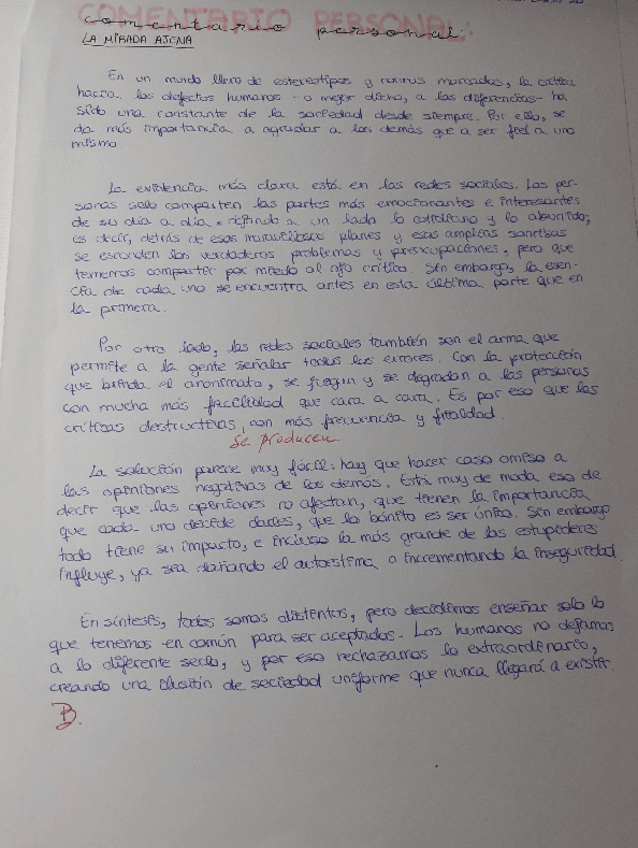 COMENTARIO PERSONAL:
comentario personal.
LA MIRADA AJENA
En un mundo lleno de estereotipos y normas marcadas, la crítica
hacia los defectos humanos - o mejor dicho, a las diferencias - ha
sido una constante de la sociedad desde siempre. Por ello, se
da más importancia a agradar a los demás que a ser feel a uno
mismo.
La evidencia más clara está en las redes sociales. Las per-
sonas solo comparten las partes más emocionantes e interesantes
de su día a día, dejando a un lado lo cotidiano y lo aburrido;
es decir, detrás de esos maravillosos planes y esas amplias sonrisas
se esconden los verdaderos problemas y preocupaciones, pero que
tememos compartir por miedo al ojo crítico. Sin embargo, la esen-
cia de cada uno se encuentra antes en esta última parte que en
la primera.
Por otro lado, las redes sociales también son el arma que
permite a la gente señalar todos los errores. Con la protección
que brinda el anonimato, se juzgan y se degradan a las personas
con mucha más facilidad que cara a cara. Es por eso que las
críticas destructivas, son más frecuencia y frialdad.
Se producen
La solución parece muy fácil: hay que hacer caso omiso a
las opiniones negativas de los demás. Está muy de moda eso de
decir que las opiniones no afectan, que tienen la importancia
que cada uno decide darles, que lo bonito es ser único. Sin embargo
todo tiene su impacto, e incluso la más grande de las estupideces
influye, ya sea dañando el autoestima o incrementando la inseguridad.
En síntesis, todos somos distintos, pero decidimos enseñar solo lo
que tenemos en común para ser aceptados. Los humanos no dejamos
a lo diferente serlo, y por eso rechazamos lo extraordinario,
creando una ilusión de sociedad uniforme que nunca llegará a existir.
B.